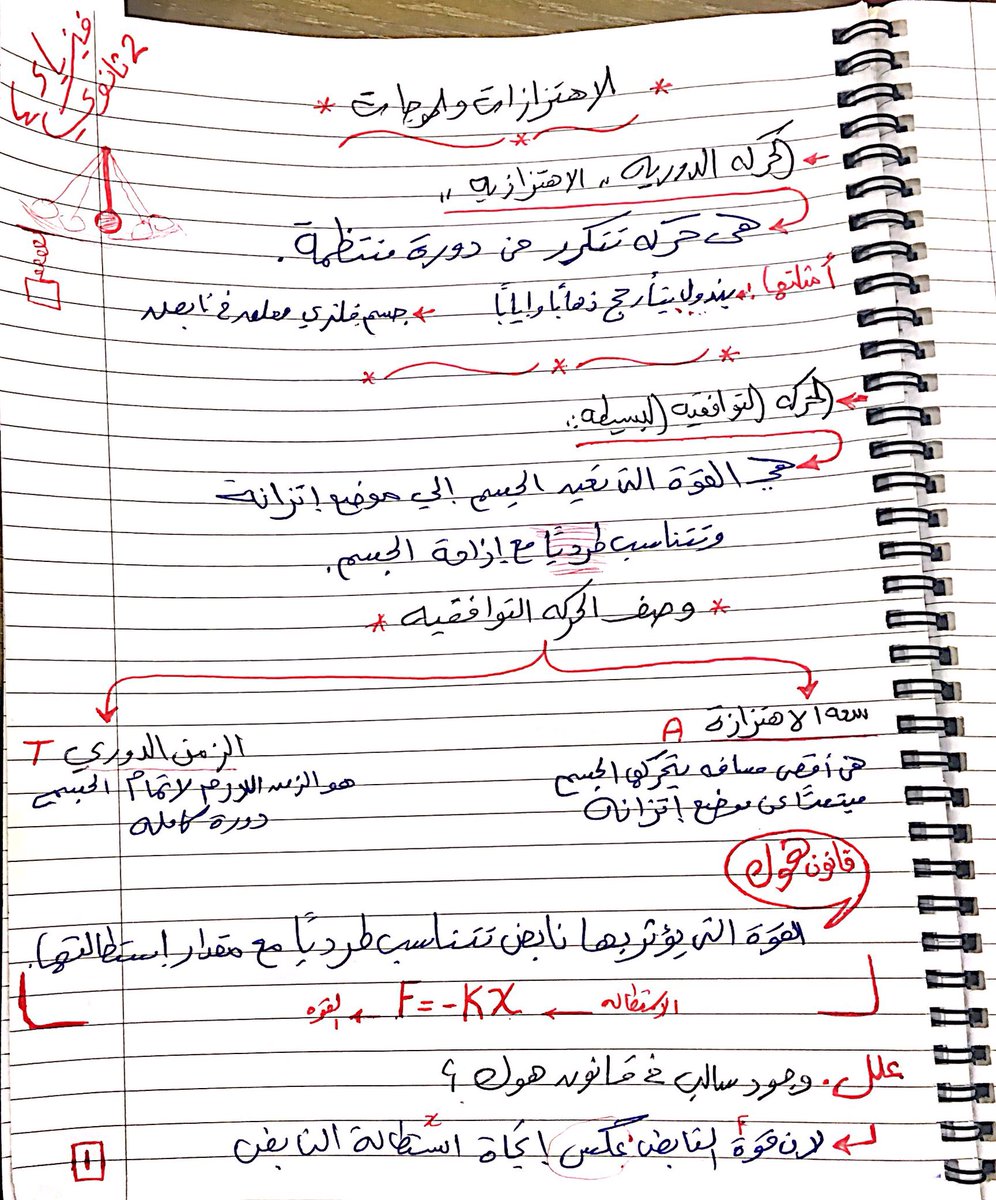 فيزياء
2 ثانوي
* الاهتزازات والموجات *
← الحركه الدوريه ,, الاهتزازيه ,,
هي حركه تتكرر في دورة منتظمة .
أمثلتها : بندول يتأرجح ذهابًا وايابًا ← جسم فلزي معلق في نابض
← الحركه التوافقيه البسيطه :
هي القوة التي تعيد الجسم إلي موضع إتزانة
وتتناسب طرديًا مع إزاحة الجسم .
* وصف الحركه التوافقيه *
سعه الاهتزازة A
هي أقصى مسافه يتحركها الجسم
مبتعدًا عن موضع إتزانة
الزمن الدوري T
هو الزمن اللازم لاتمام الجسم
دورة كامله
قانون هوك
القوة التي يؤثر بها نابض تتناسب طرديًا مع مقدار إستطالتها .
الاستطاله ← F = -Kx ← القوه
علل . وجود سالب في قانون هوك ؟
لان قوة F النابض عكس إتجاة استطالة x النابض
1